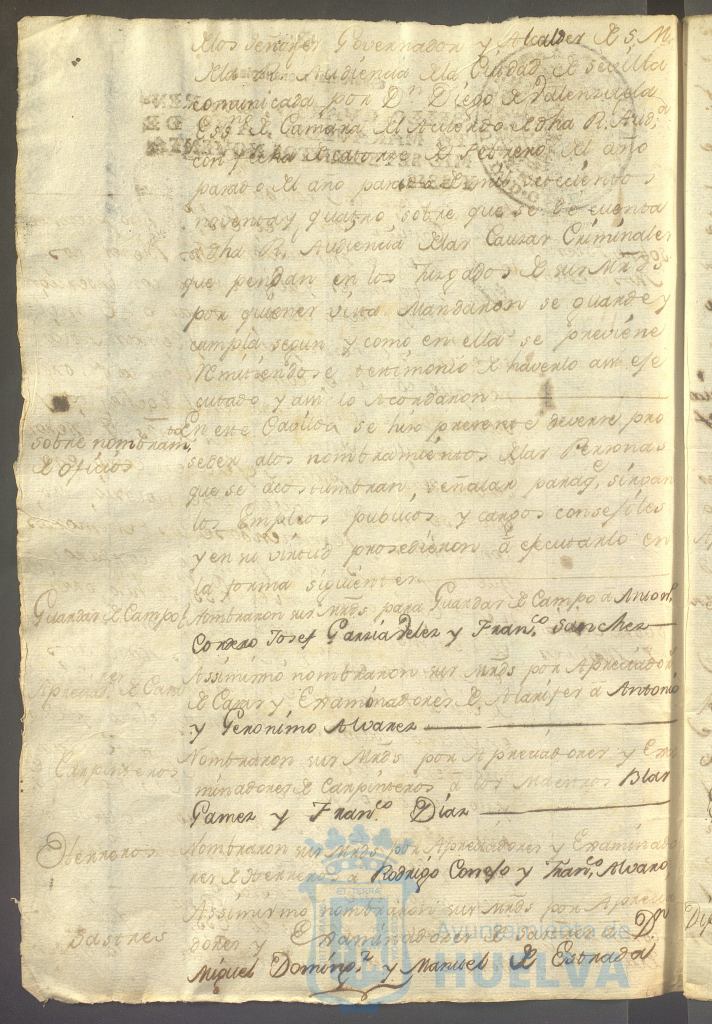 de los señores Governador y Alcaldes de S. M.
de la Rl. Audiencia de la Ciudad de Sevilla
comunicada por Dn. Diego de Valenzuela
Essno. de Camara del Acuerdo de dha Rl. Audª
con fecha de catorze de Febrero del año
pasado
noventa y quatro, sobre que se dé cuenta
a dha Rl. Audiencia de las Causas Criminales
que pendan en los Juzgados de sus Mrds
por quienes vista Mandaron se guarde y
cumpla segun y como en ella se previene
Remitiendose testimonio de haverlo asi efe
cutado y asi lo Acordaron
sobre nombramto.
de oficios
En este Cavildo se hizo presente deverse pro
seder a los nombramientos de las Personas
que se acostumbran señalar para qe. sirvan
los Empleos publicos y cargos consejiles
y en su virtud prosedieron á ejecutarlo en
la forma siguiente
Guardas de Campo
Nombraron sus Mrds para Guardas de Campo a Antonº
Cordero Josef Garzia Velez y Franco. Sanchez
Apreciadºs de Casas
Assimismo nombraron sus Mrds por Apreciadors
de Casas y Examinadores de Alarifes á Antonio
y Geronimo Alvarez
Carpinteros
Nombraron sus Mrds por Apreciadores y Exa
minadores de Carpinteros á los Maestros Blas
Gamez y Franco. Diaz
Herreros
Nombraron sus Mrds por Apreciadores y Examinado
res de Herreros a Rodrigo Conejo y Franco. Alvares
Sastres
Assimismo nombraron sus Mrds por Aprecia
dores y Examinadores de Sastres a Dn.
Miguel Domingz. y Manuel de Estrada
Ayuntamiento de
HUELVA